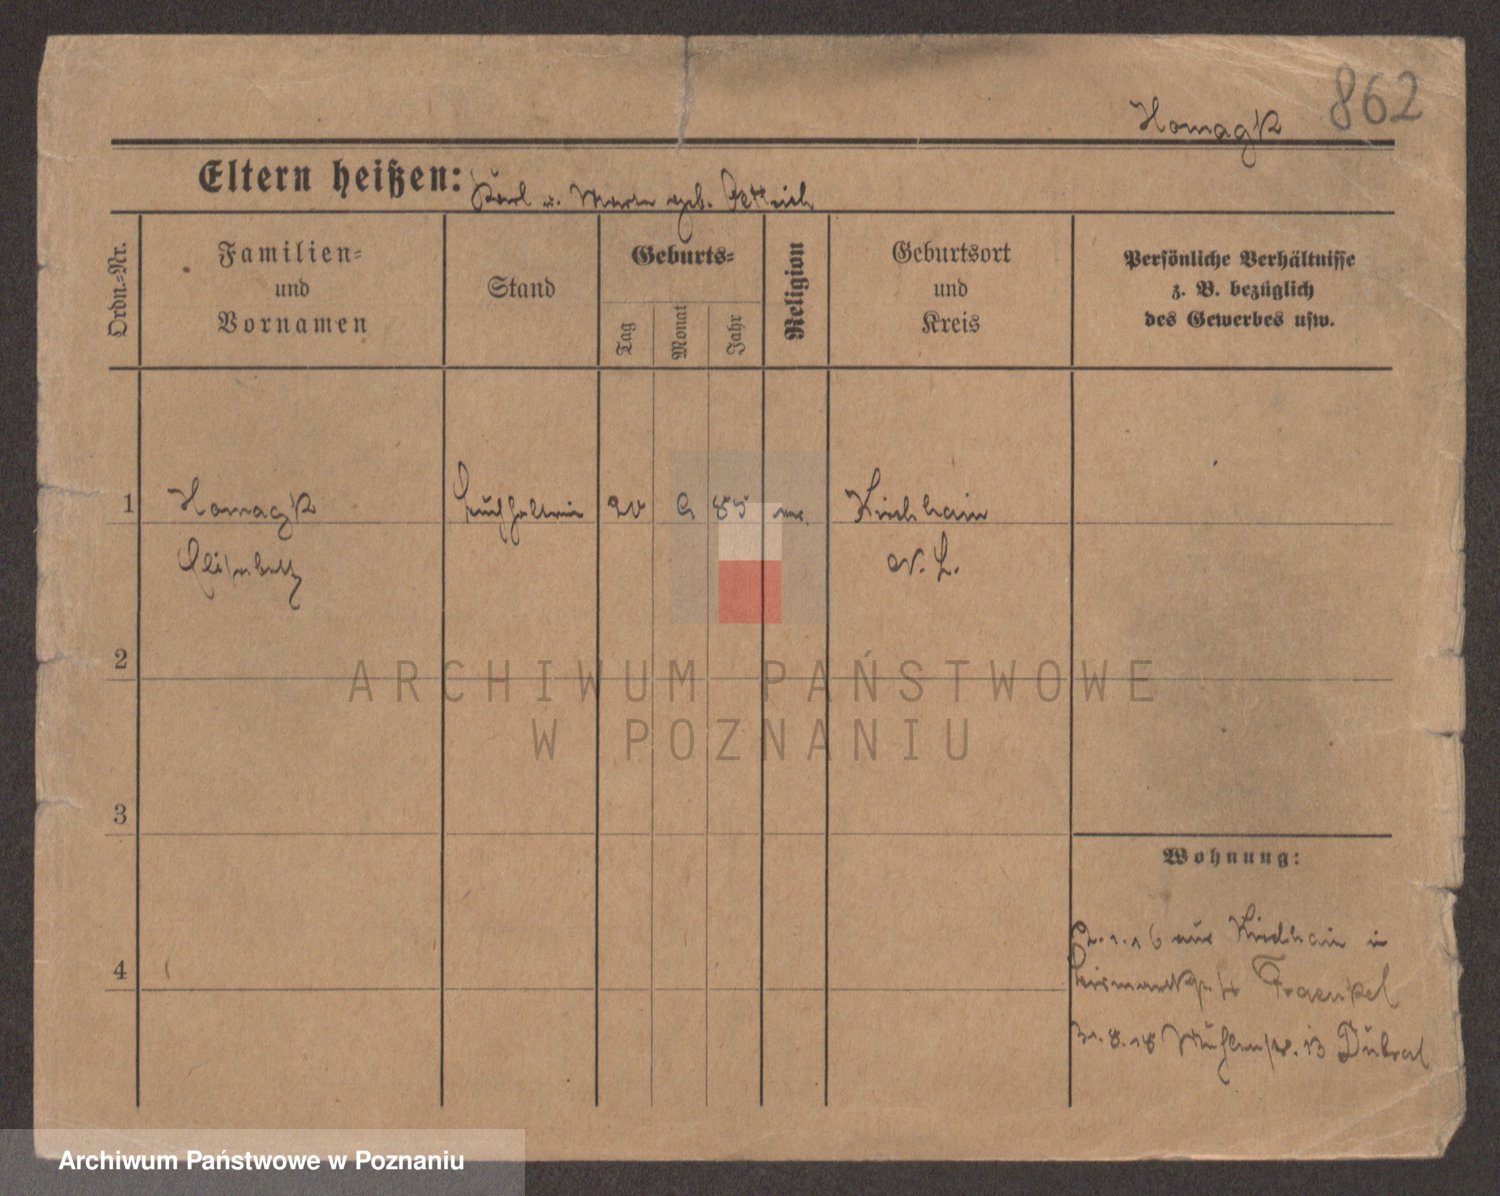 862
Homagk
Eltern heißen: Karl u. Marie geb. Dettrich
Ordn.=Nr.
Familien=
und
Vornamen
Stand
Geburts=
Tag
Monat
Jahr
Religion
Geburtsort
und
Kreis
Persönliche Verhältnisse
z. B. bezüglich
des Gewerbes usw.
1 Homagk Buchhalterin 20 9 85 ev. Kirchhain
Elisabeth N. L.
2
3
4
Wohnung:
2.1.16 aus Kirchhain in
Fraenkel
31.8.18 Mühlenstr. 13
ARCHIWUM PAŃSTWOWE
W POZNANIU
Archiwum Państwowe w Poznaniu